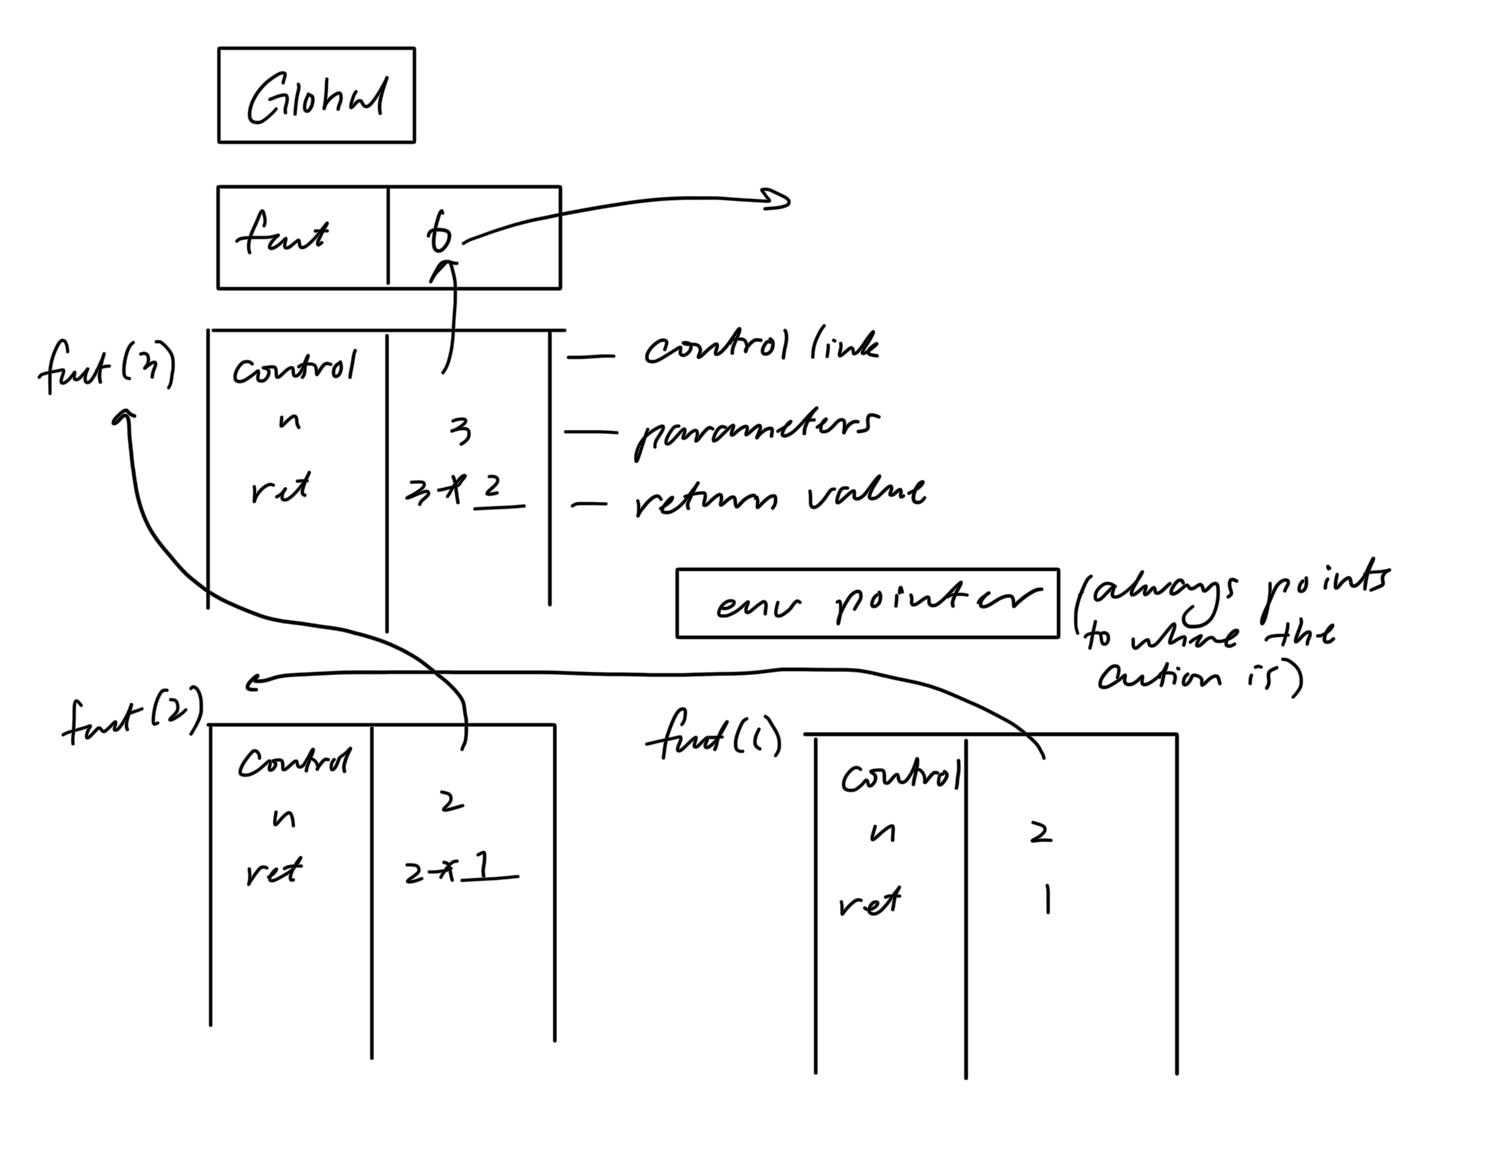 Global
fact 6
fact(3)
control — control link
n 3 — parameters
ret 3 * 2 — return value
env pointer (always points
to where the
action is)
fact(2)
control
n 2
ret 2 * 1
fact(1)
control
n 2
ret 1